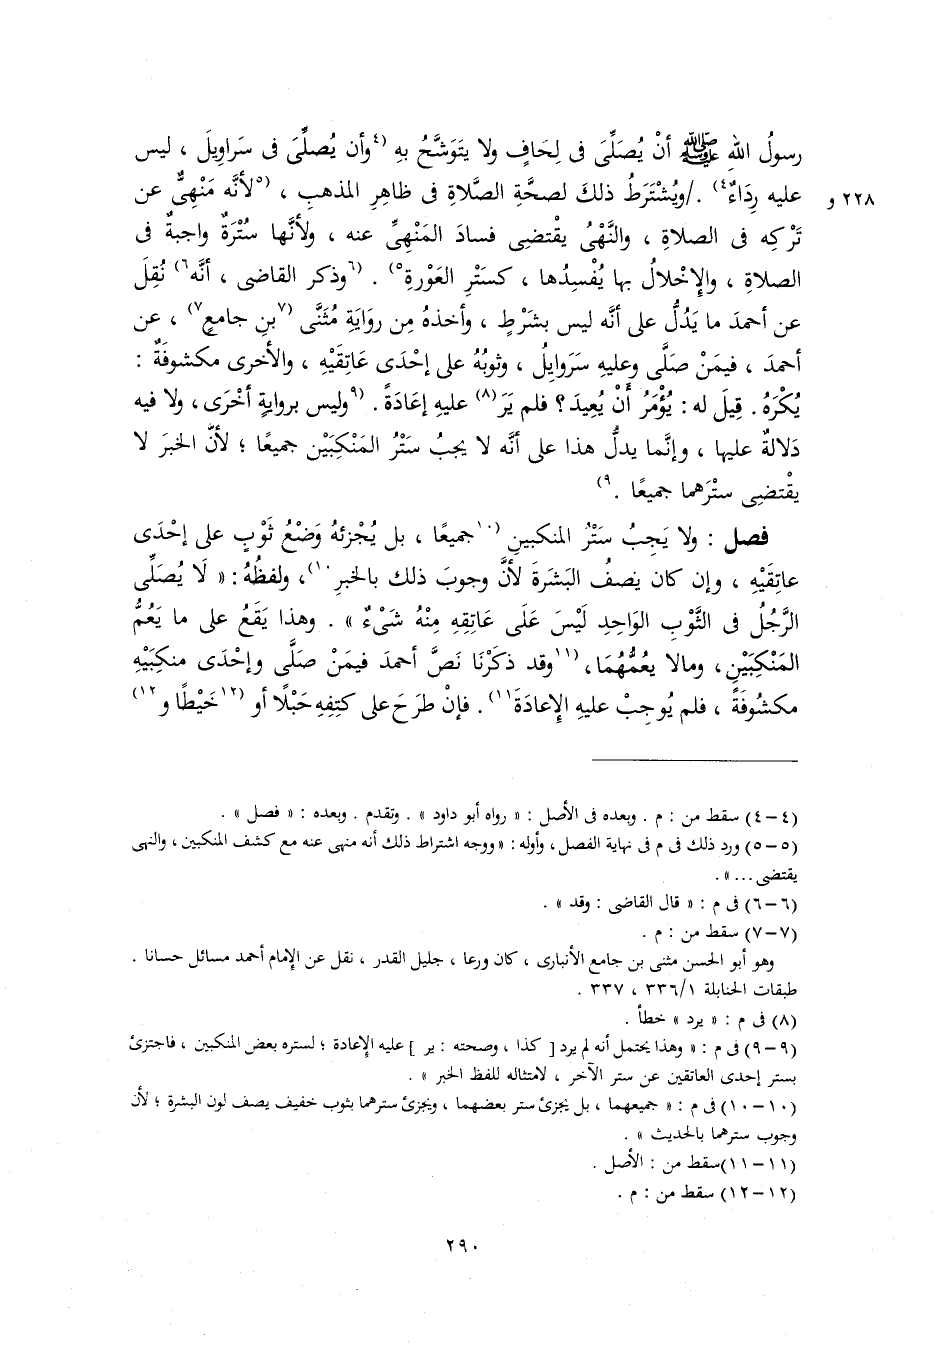 رسولُ اللهِ ﷺ أنْ يُصَلِّىَ فى لِحَافٍ ولا يتَوَشَّحُ بهِ (٤وأن يُصلِّىَ فى سَراوِيلَ ، ليس
عليه رِدَاءٌ٤) . /ويُشْتَرطُ ذلكَ لصحَّةِ الصَّلاةِ فى ظاهِرِ المذهبِ ، (٥لأنَّه مَنْهِىٌّ عن ٢٢٨ و
تَرْكِه فى الصلاةِ ، والنَّهْىُ يقْتضِى فسادَ المَنْهِىِّ عنه ، ولأنَّها سُتْرَةٌ واجبةٌ فى
الصلاةِ ، والإِخْلالُ بها يُفْسِدُها ، كسَتْرِ العَوْرةِ٥) . (٦وذكر القاضى ، أنَّه٦) نُقِلَ
عن أحمدَ ما يَدُلُّ على أنَّه ليس بشَرْطٍ ، وأخذهُ مِن روَايَةِ مُثَنَّى (٧بنِ جامعٍ٧) ، عن
أحمدَ ، فيمَنْ صلَّى وعليه سَرَوايلُ ، وثوبُهُ على إحْدَى عَاتِقَيْهِ ، والأخرى مكشوفَةٌ :
يُكْرَهُ . قِيلَ له : يُؤْمَرُ أَنْ يُعِيدَ ؟ فلم يَرَ(٨) عليهِ إعَادَةً . (٩وليس بروايةٍ أخْرَى ، ولا فيه
دَلالةٌ عليها ، وإنَّما يدلُّ هذا على أنَّه لا يجبُ سَتْرُ المَنْكِبَيْنِ جميعًا ؛ لأنَّ الخبرَ لا
يقْتضِى ستْرَهما جميعًا .٩)
فصل : ولا يَجِبُ سَتْرُ المنكبينِ (١٠جميعًا ، بل يُجْزئهُ وَضْعُ ثَوْبٍ على إحْدَى
عاتِقَيْهِ ، وإن كان يَصفُ البَشَرةَ لأنَّ وجوبَ ذلك بالخَبرِ١٠) ، ولفظُهُ : « لَا يُصَلِّى
الرَّجُلُ فى الثَّوْبِ الوَاحِدِ لَيْسَ عَلَى عَاتِقِهِ مِنْهُ شَىْءٌ » . وهذا يَقَعُ على ما يَعُمُّ
المَنْكِبَيْنِ ، ومالا يعُمُّهُمَا ، (١١وقد ذكَرْنَا نَصَّ أحمدَ فيمَنْ صلَّى وإحْدَى منكِبَيْهِ
مكشُوفَةً ، فلم يُوجِبْ عليهِ الإعادَةَ١١) . فإنْ طرَحَ على كتِفِهِ حَبْلًا أو (١٢خَيْطًا و١٢)
(٤-٤) سقط من : م . وبعده فى الأصل : « رواه أبو داود » . وتقدم . وبعده : « فصل » .
(٥-٥) ورد ذلك فى م فى نهاية الفصل ، وأوله : « ووجه اشتراط ذلك أنه منهى عنه مع كشف المنكبين ، والنهى
يقتضى ... » .
(٦-٦) فى م : « قال القاضى : وقد » .
(٧-٧) سقط من : م .
وهو أبو الحسن مثنى بن جامع الأنبارى ، كان ورعا ، جليل القدر ، نقل عن الإمام أحمد مسائل حسانا .
طبقات الحنابلة ٣٣٦/١ ، ٣٣٧ .
(٨) فى م : « يرد » خطأ .
(٩-٩) فى م : « وهذا يحتمل أنه لم يرد [ كذا ، وصحته : ير ] عليه الإعادة ؛ لستره بعض المنكبين ، فاجتزئ
بستر إحدى العاتقين عن ستر الآخر ، لامتثاله للفظ الخبر » .
(١٠-١٠) فى م : « جميعهما ، بل يجزئ ستر بعضهما ، ويجزئ سترهما بثوب خفيف يصف لون البشرة ؛ لأن
وجوب سترهما بالحديث » .
(١١-١١)سقط من : الأصل .
(١٢-١٢) سقط من : م .
٢٩٠